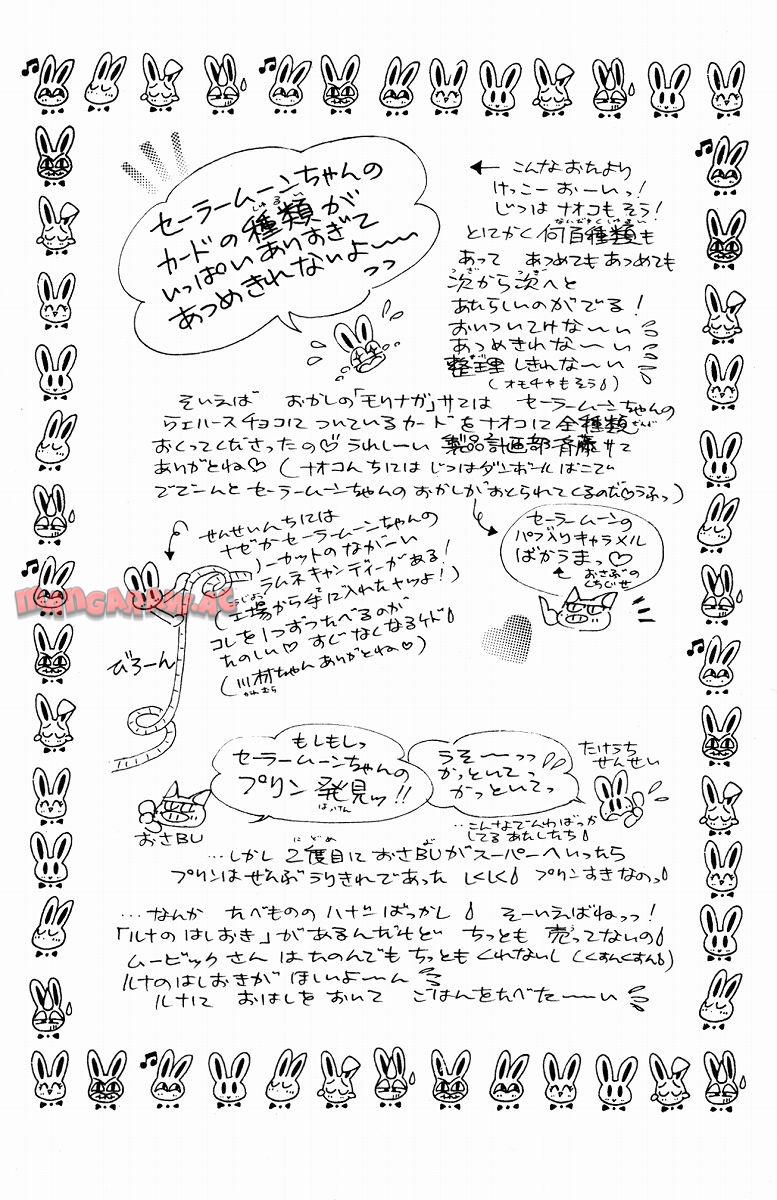 セーラームーンちゃんの
カードの種類が
しゅるい
いっぱいありすぎて
あつめきれないよ～～
っっ
← こんなおたより
けっこーおーいっ!
じつは ナオコもそう!
なんびゃくしゅるい
とにかく 何百種類も
あって あつめてもあつめても
つぎ つぎ
次から次へと
あたらしいのがでる!
おいついてけな～～い
あつめきれな～～い
整理しきれな～～い
(オモチャもそう)
そいえば おかしの「モリナガ」サンは セーラームーンちゃんの
ウェハースチョコについているカードをナオコに全種類
おくってくださったの♡うれしーい 製品計画部斉藤サン
ありがとね♡(ナオコんちには じつはダンボールばこで
でで～んと セーラームーンちゃんの おかしがおくられてくるのだ♡うふっ)
せんせいんちには
ナゼかセーラームーンちゃんの
ノーカットのながーい
ラムネキャンディーがある!
こうじょう
(工場から手に入れたヤツよ!)
コレを1つずつたべるのが
たのしい♡すぐなくなるケド
(川村ちゃんありがとね♡)
かわむら
びろーん
セーラームーンの
パフ入りキャラメル
ばかうまっ♡
おさぶの
くちぐせ
MANGARAW.AC
もしもしっ
セーラームーンちゃんの
プリン発見ッ!!
はっけん
おさBU
うそ～～っっ
かっといてっ
かっといてっ
たけうち
せんせい
…こんなでんわばっか
してるあたしたち
にどめ
…しかし 2度目に おさBUがスーパーへいったら
プリンはぜんぶうりきれであった しくしく プリンすきなのっ
…なんか たべもののハナシばっかし そーいえばねっっ!
「ルナのはしおき」があるんだけど ちっとも 売ってないの
ムービックさん はたのんでも ちっともくれないし(くすんくすん)
ルナのはしおきが ほしいよ～～ん
ルナに おはしを おいて ごはんをたべた～～い